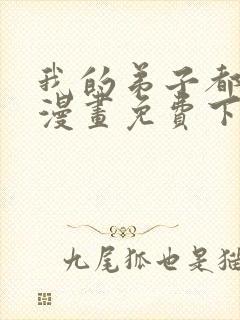 我的弟子都
漫畫免費下
九尾狐也是猫